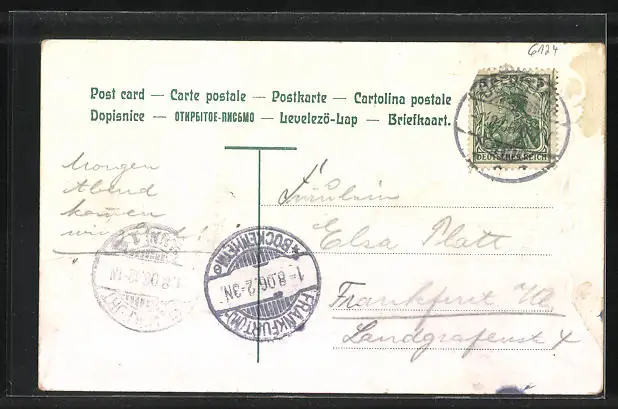 6124
Post card — Carte postale — Postkarte — Cartolina postale
Dopisnice — ОТКРЫТОЕ-ПИСЬМО — Levelező-Lap — Briefkaart.
DEUTSCHES REICH
Morgen
Abend
kommen
wir
Fräulein
Elsa Platt
Frankfurt
Landgrafenstr 4
* BOCKENHEIM
1-8.06.2-3N.
FRANKFURT (M)